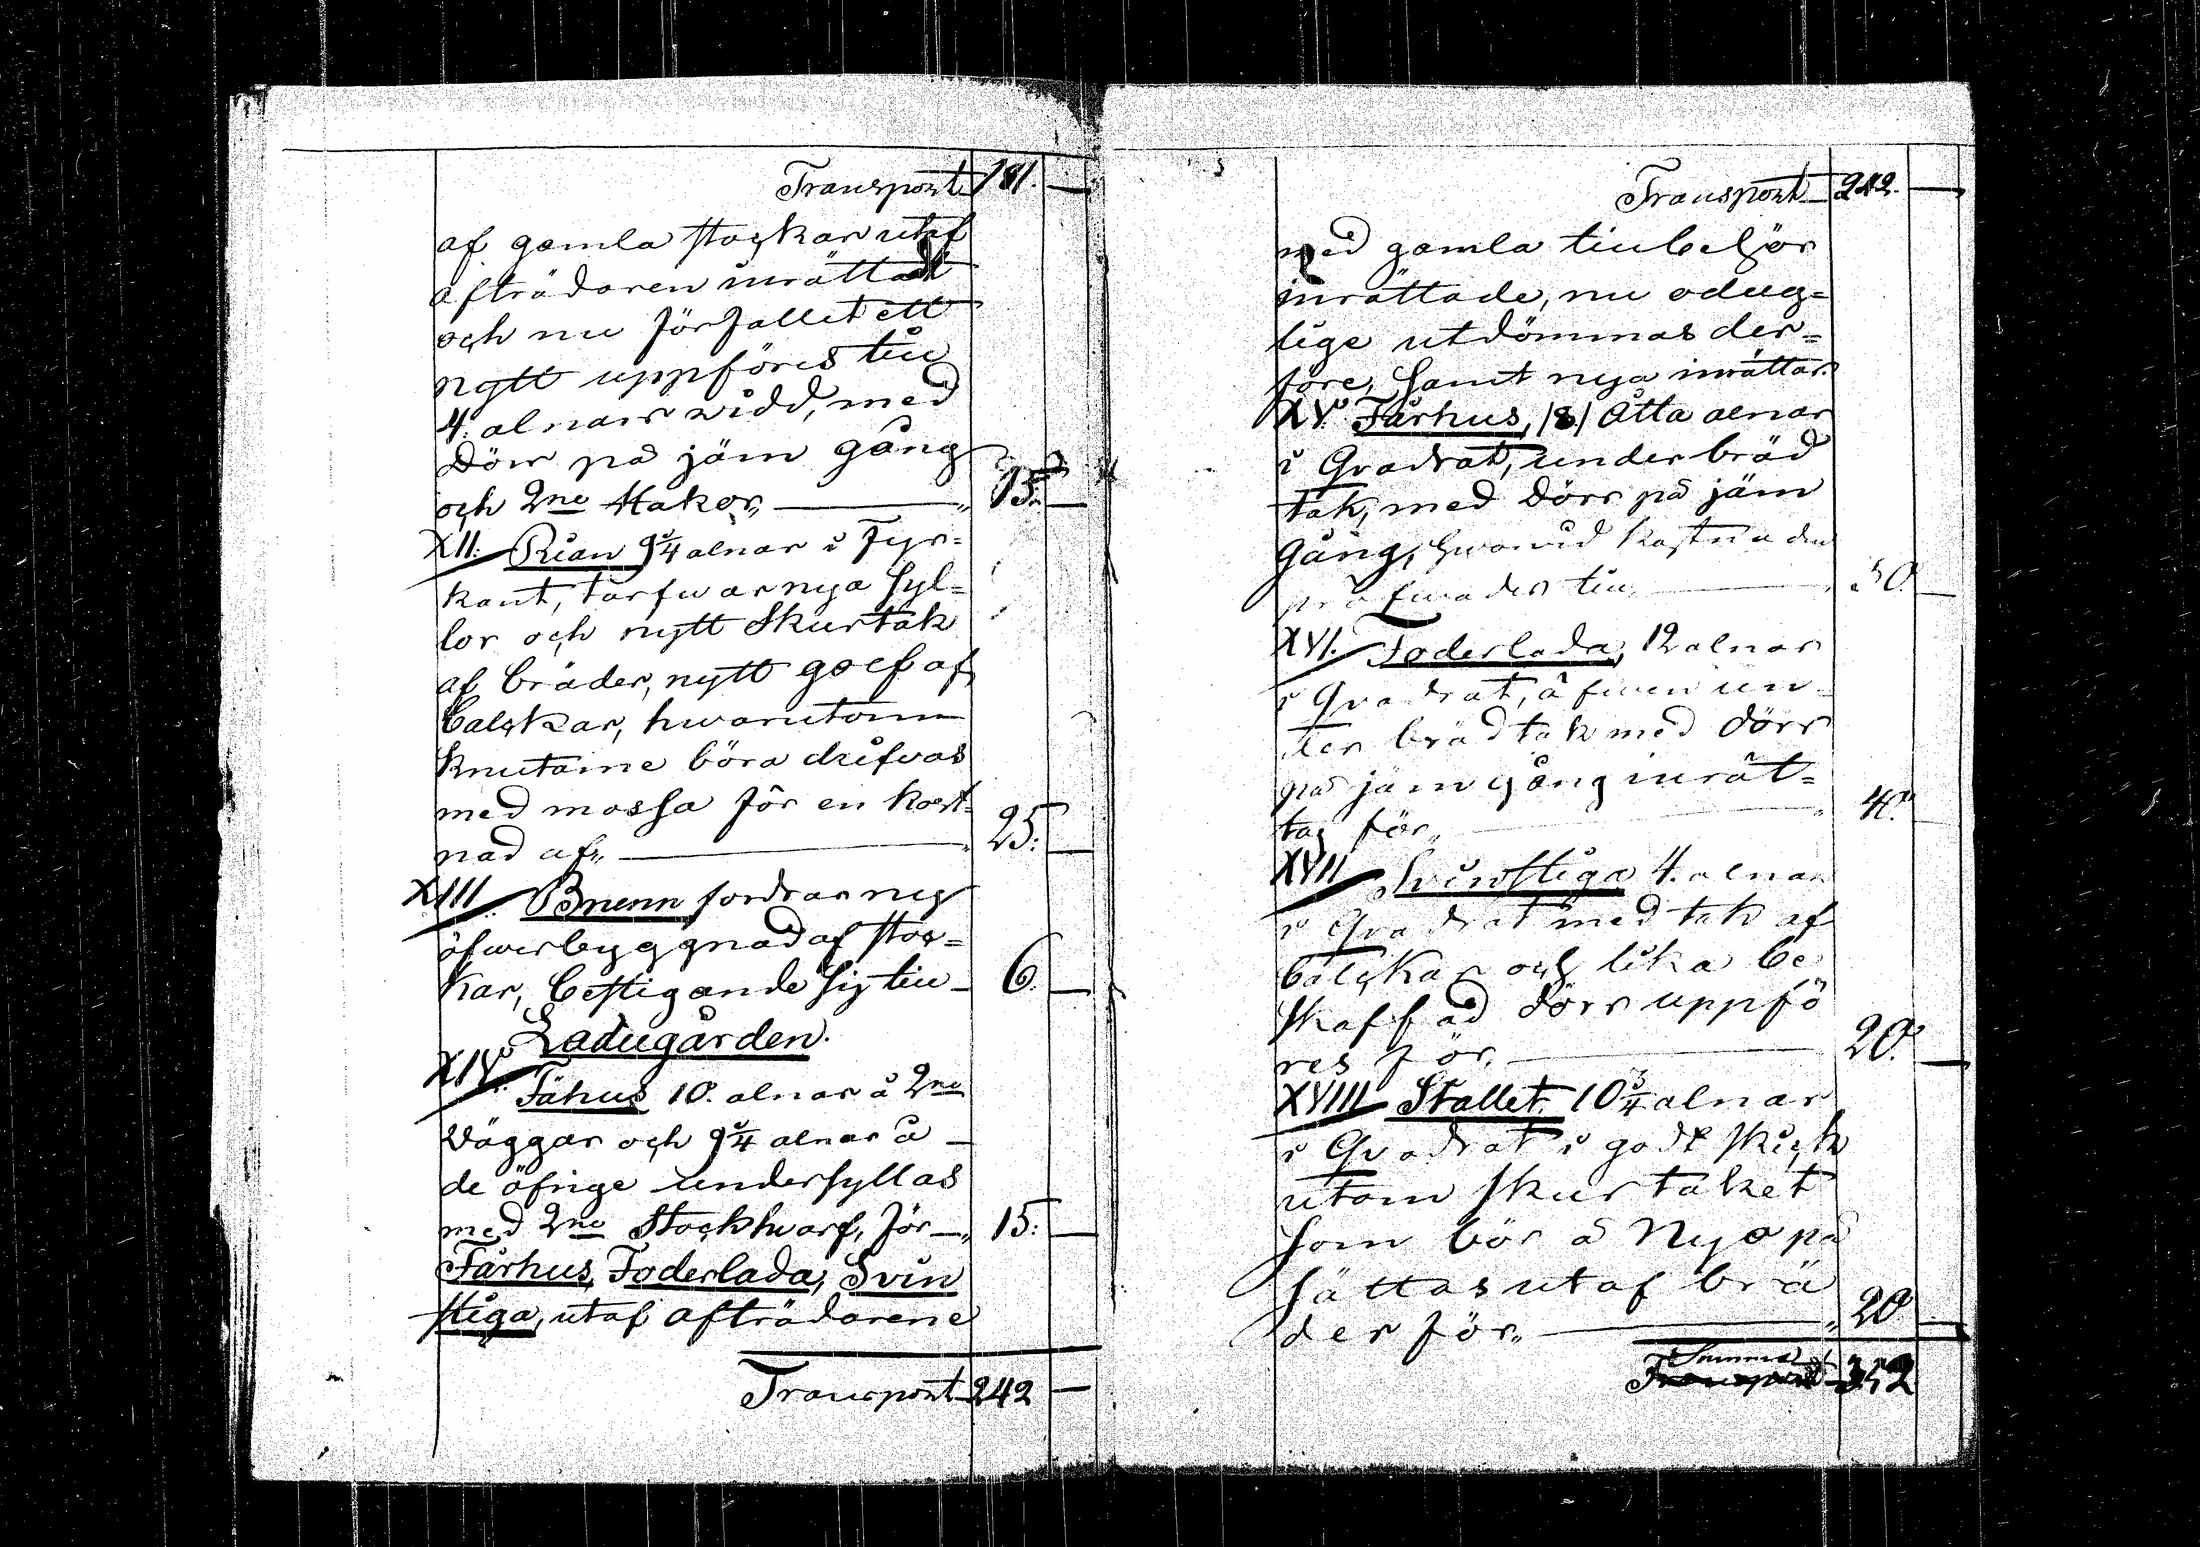 Transport 181. —
af gamla stockar utaf
afträdaren inrättat
och nu förfallet ett
nytt uppföres till
4. alnars vidd, med
Dörr på jäm gång
och 2ne Hakor,, — 15. —
XII. Rian 9¾ alnar i Fyr=
kant, tarfwar nya Syl=
lor och nytt Skurtak
af bräder, nytt golf af
balckar, hwarutom
knutarne böra drifvas
med mossa för en kost=
nad af,, — 25: —
XIII. Brunn fordrar ny
öfwerbyggnad af stoc=
kar, bestigande sig till — 6. —
Ladugården.
XIV. Fähus 10. alnar å 2ne
Väggar och 9¾ alnar å
de öfrige undersyllas
med 2ne Stockhwarf, för — 15: —
Fårhus, Foderlada, Svin
stiga, utaf afträdarene
Transport 242 —
Transport 242. —
med gamla tillbehör
inrättade, nu odug=
lige utdömmas der=
före, samt nya inrättas.
XV. Fårhus, /8/ Åtta alnar
i Qvadrat, under bräd
tak, med Dörr på jäm
gång, hwarvid kostnaden
pröfwades till, — 30. —
XVI. Foderlada, 12 alnar
i Qvadrat, äfwen un=
der brädtak med dörr
på jäm gång inrät=
tas för,, — 40.
XVII Svinstiga 4. alnar
i Qvadrat med tak af
balckar och lika be
skaffad dörr uppfö
res för, — 20. —
XVIII Stallet 10¾ alnar
i Qvadrat i godt skick
utom skurtaket
som bör å Nyo på
sättas utaf brä
der för,, — 20 —
Summa 352